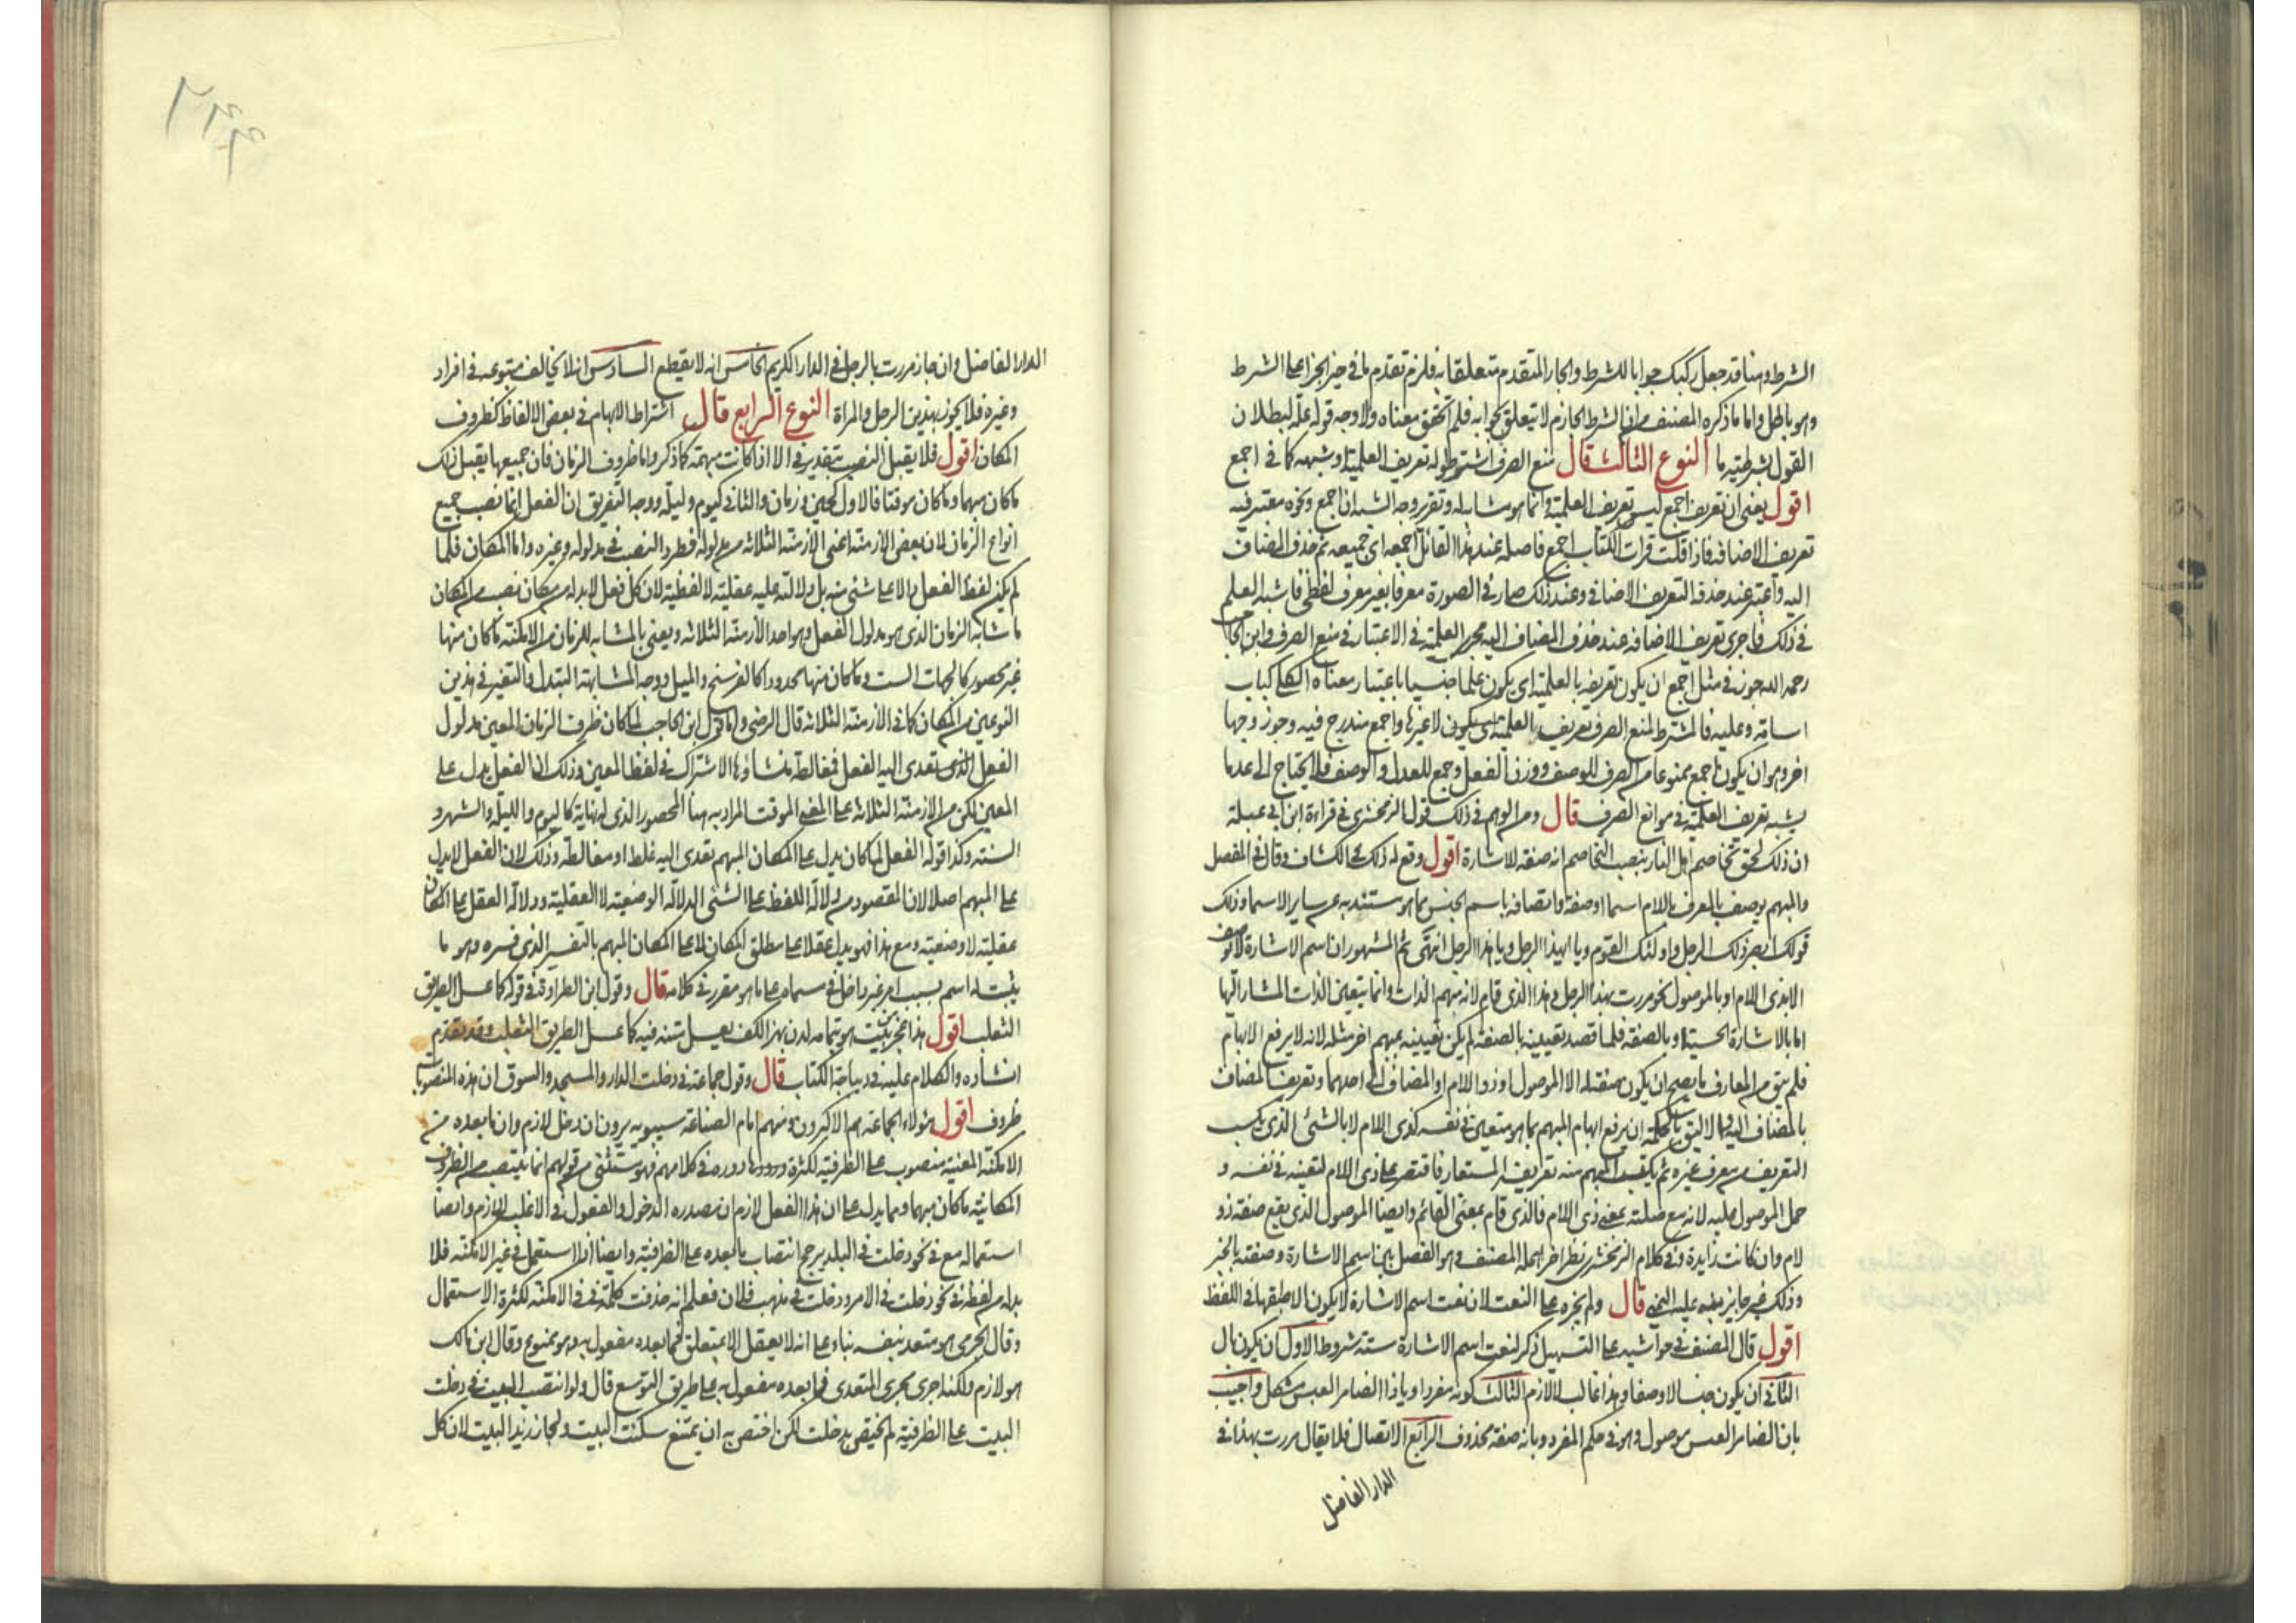 الشرط وهنا قد جعل ركبك جوابا للشرط والجار المتقدم متعلقا به فلزم تقدم ما في حيز الجزاء على الشرط
وهو باطل واما ما ذكره المصنف من ان الشرط الجازم لا يتعلق بجوابه فلم اتحقق معناه ولا وجه قوله علة لبطلان
القول بشرطية ما النوع الثالث قال منع الصرف اشترطوا له تعريف العلمية او شبهه كما في اجمع
اقول يعنى ان تعريف اجمع ليس تعريف العلمية وانما هو مشابه له وتقرير وجه الشبه ان اجمع ونحوه معتبر فيه
تعريف الاضافة فاذا قلت قرات الكتاب اجمع فاصله عند هذا القائل اجمعه اى جميعه ثم حذف المضاف
اليه واعتبر عند حذفه التعريف الاضافى وعند ذلك صار في الصورة معرفا بغير معرف لفظي فاشبه العلم
في ذلك فاجرى تعريف الاضافه عند حذف المضاف اليه مجرى العلمية في الاعتبار في منع الصرف وابن الحاجب
رحمه الله جوز في مثل اجمع ان يكون تعريفه بالعلمية اى يكون علما جنسيا باعتبار معناه الكلى كباب
اسامة وعليه فالشرط لمنع الصرف تعريف العلمية اى يكون لا غيرها واجمع مندرج فيه وجوز وجها
اخر وهو ان يكون اجمع ممنوعا من الصرف للوصف ووزن الفعل وجمع للعدل والوصف فلا يحتاج الى عد ما
يشبه تعريف العلمية في موانع الصرف قال ومن الوهم في ذلك قول الزمخشرى في قراءة ابن ابي عبلة
ان ذلك لحق تخاصم اهل النار بنصب التخاصم انه صفة للاشارة اقول وقع له ذلك في الكشاف وقال في المفصل
والمبهم يوصف بالمعرف باللام اسما او صفة واتصافه باسم الجنس مما هو مستند به عن ساير الاسما وذلك
قولك ابصر ذلك الرجل واولئك القوم ويا ايهذا الرجل ويا هذا الرجل انتهى ثم المشهور ان اسم الاشارة لا يوصف
الا بذى اللام او بالموصول نحو مررت بهذا الرجل وهذا الذى قام لانه مبهم الذات وانما يتعين الذات المشار اليها
اما بالاشارة الحسية او بالصفة فلما قصد تعيينه بالصفة لم يكن تعيينه بمبهم اخر مثله لانه لا يرفع الابهام
فلم يبق من المعارف ما يصح ان يكون صفة له الا الموصول او ذو اللام او المضاف الى احدهما وتعريف المضاف
بالمضاف اليه والاليق بالحكمة ان يرفع ابهام المبهم بما هو متعين في نفسه كذى اللام لا بالشئى الذى يكسب
التعريف من معرف غيره ثم يكتسب المبهم منه تعريفه المستعار فاقتصر على ذى اللام لتعينه في نفسه و
حمل الموصول عليه لانه مع صلته بمعنى ذى اللام فالذى قام بمعنى القائم وايضا الموصول الذى يقع صفة ذو
لام وان كانت زايدة وفى كلام الزمخشرى نظر اخر اهمله المصنف وهو الفصل بين اسم الاشارة وصفته بالخبر
وذلك غير جايز نبه عليه النحي قال ولم يجره على النعت لان نعت اسم الاشارة لا يكون الا طبقها في اللفظ
اقول قال المصنف في حواشيه على التسهيل ذكر لنعت اسم الاشارة ستة شروط الاول ان يكون بال
الثانى ان يكون جنسا لا وصفا وهذا غالب لا لازم الثالث كونه مفردا ويا ذا الضامر العبس مشكل واجيب
بان الضامر العبس موصول وهو في حكم المفرد وبانه صفة محذوف الرابع الاتصال فلا يقال مررت بهذا في
الدار الفاضل
٢٤٤
الدار الفاضل وان جاز مررت بالرجل في الدار الكريم الخامس انه لا يقطع السادس انه لا يخالف متبوعه في افراد
وغيره فلا يجوز بهذين الرجل والمراة النوع الرابع قال اشتراط الابهام في بعض الالفاظ كظروف
المكان اقول فلا يقبل النصب بتقدير في الا اذا كانت مبهمة كما ذكر واما ظروف الزمان فان جميعها يقبل ذلك
ما كان مبهما وما كان موقتا فالاول كحين وزمان والثانى كيوم وليلة ووجه التفريق ان الفعل انما نصب جميع
انواع الزمان لان بعض الازمنة اعنى الازمنة الثلاثه من مدلوله فطرد النصب في مدلوله وغيره واما المكان فلما
لم يكن لفظ الفعل دالا على شئى منه بل دلالته عليه عقلية لا لفظية لان كل فعل لا بد له من مكان نصب من المكان
ما شابه الزمان الذى هو مدلول الفعل وهو احد الازمنة الثلاثه ويعنى بالمشابه للزمان من الامكنة ما كان منها
غير محصور كالجهات الست وما كان منها محدودا كالفرسخ والميل ووجه المشابهة التبدل والتغير في هذين
النوعين من المكان كما في الازمنة الثلاثه قال الرضى واما قول ابن الحاجب لما كان ظرف الزمان المعين مدلول
الفعل الذى تعدى اليه الفعل فمغالطة منشاؤها الاشتراك في لفظ المعين وذلك ان الفعل يدل على
المعين لكن من الازمنة الثلاثه على المعنى الموقت المراد به هنا المحصور الذى له نهاية كاليوم والليلة والشهر و
السنه وكذا قوله الفعل لما كان يدل على المكان المبهم تعدى اليه غلط او مغالطة وذلك لان الفعل لا يدل
على المبهم اصلا لان المقصود من دلالة اللفظ على الشئى الدلالة الوضعية لا العقلية ودلالة العقل على المكان
عقلية لا وضعية ومع هذا فهو يدل عقلا على مطلق المكان لا على المكان المبهم بالتفسير الذى فسره وهو ما
يثبت له اسم بسبب امر غير داخل في مسماه على ما هو مقرر في كلامه قال وقول ابن الطراوة في قوله كما عسل الطريق
الثعلب اقول هذا عجز بيت هو بتمامه لدن بهز الكف يعسل متنه فيه كما عسل الطريق الثعلب وقد تقدم
انشاده والكلام عليه في ديباجة الكتاب قال وقول جماعة في دخلت الدار والمسجد والسوق ان هذه المنصوبات
ظروف اقول هؤلاء الجماعة هم الاكثرون ومنهم امام الصناعه سيبويه يرون ان دخل لازم وان ما بعده من
الامكنة المعنية منصوب على الظرفية لكثرة دوره في كلامهم فهو مستثنى من قولهم انما ينتصب من الظروف
المكانية ما كان مبهما ومما يدل على ان هذا الفعل لازم ان مصدره الدخول والفعول في الاغلب للازم وايضا
استعماله مع في نحو دخلت في البلد يرجح انتصاب ما بعده على الظرفية وايضا اذا استعمل في غير الامكنة فلا
بد له من لفظة في نحو دخلت في الامر ودخلت في مذهب فلان فعلم انه حذفت كلمة في في الامكنة لكثرة الاستعمال
وقال الجرمى هو متعد بنفسه بناء على انه لا يعقل الا بمتعلق فما بعده مفعول به وهو ممنوع وقال ابن مالك
هو لازم ولكنه اجرى مجرى المتعدى فما بعده مفعول به على طريق التوسع قال ولو انتصب البيت في دخلت
البيت على الظرفية لم يختص بدخلت لكن اختص به ان يمتنع سكنت البيت ولجاز زيد البيت لان كل